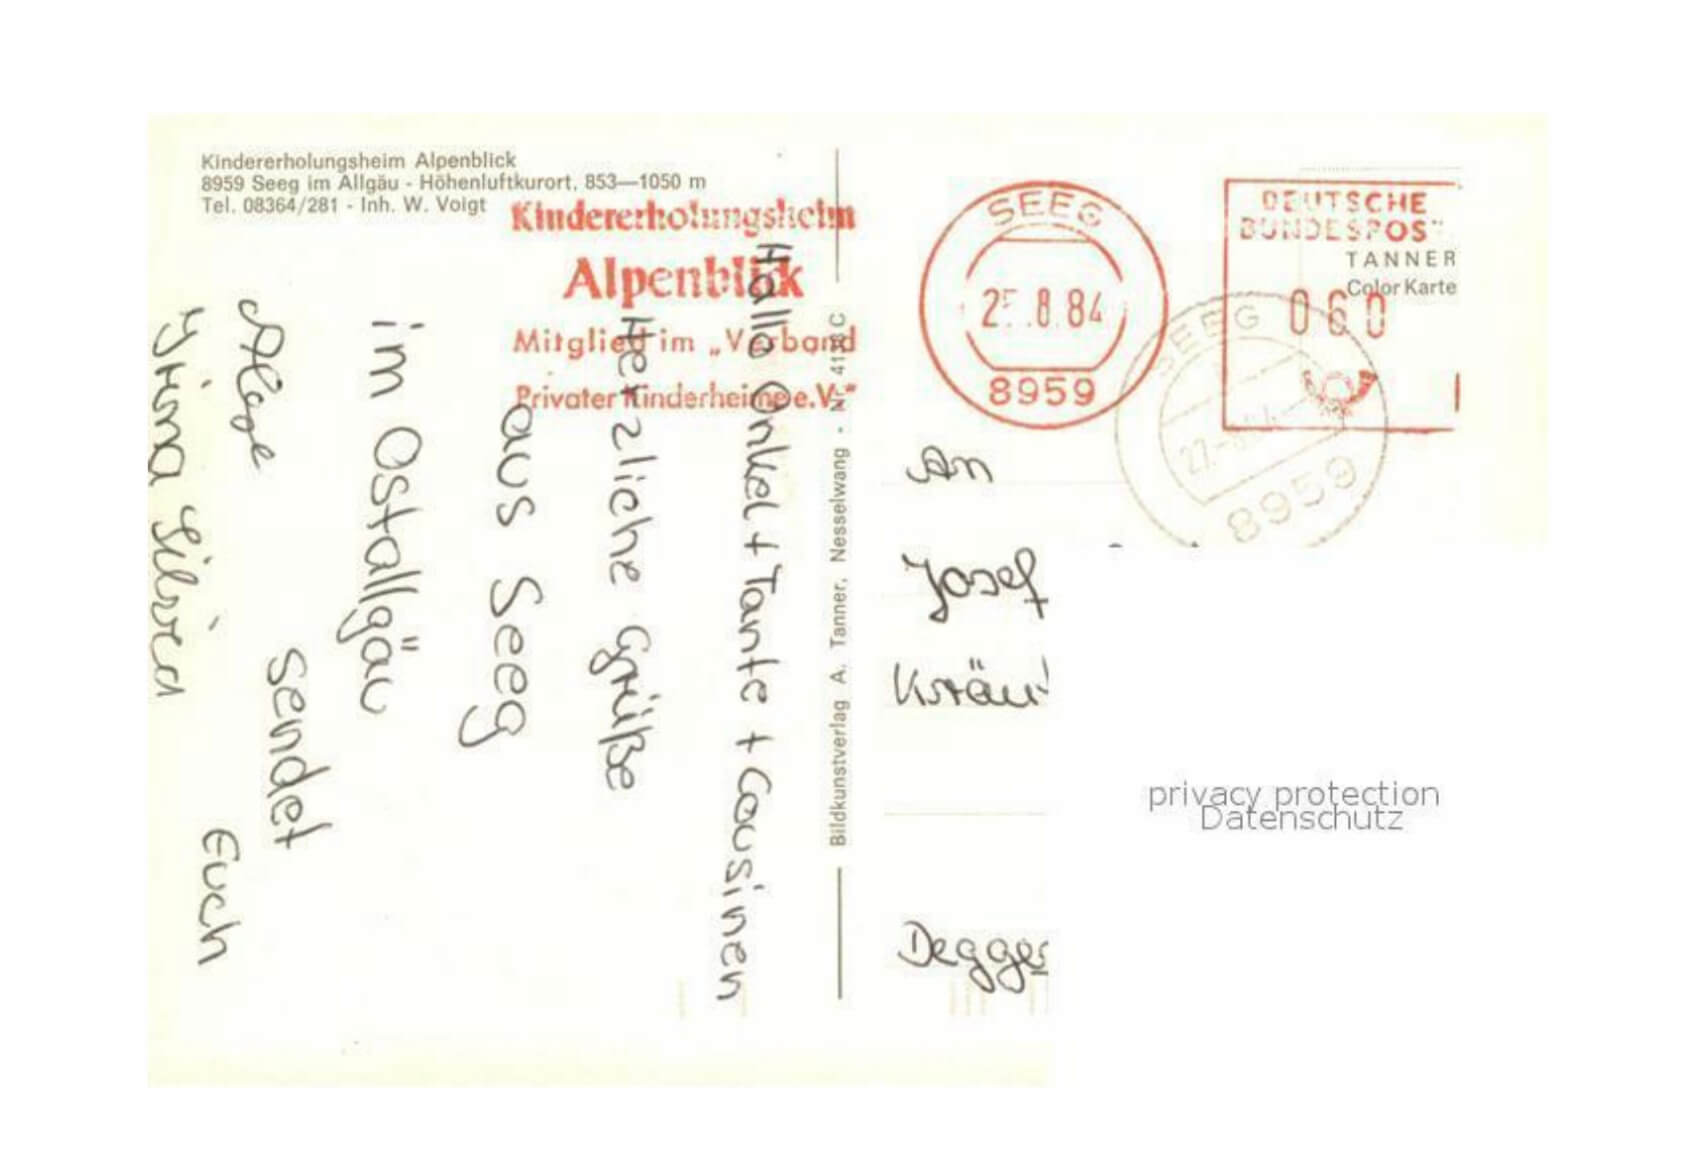 Kindererholungsheim Alpenblick
8959 Seeg im Allgäu - Höhenluftkurort, 853—1050 m
Tel. 08364/281 - Inh. W. Voigt
Kindererholungsheim
Alpenblick
Mitglied im „Verband
Privater Kinderheime e.V."
Hallo Onkel + Tante + Cousinen
Herzliche Grüße
aus Seeg
im Ostallgäu
sendet
Euch
Silvia
Bildkunstverlag A. Tanner, Nesselwang - Nr.
SEEG
8.84
8959
DEUTSCHE
BUNDESPOS
TANNER
Color Karte
060
SEEG
8959
An
Josef
Kräu
Degge
privacy protection
Datenschutz